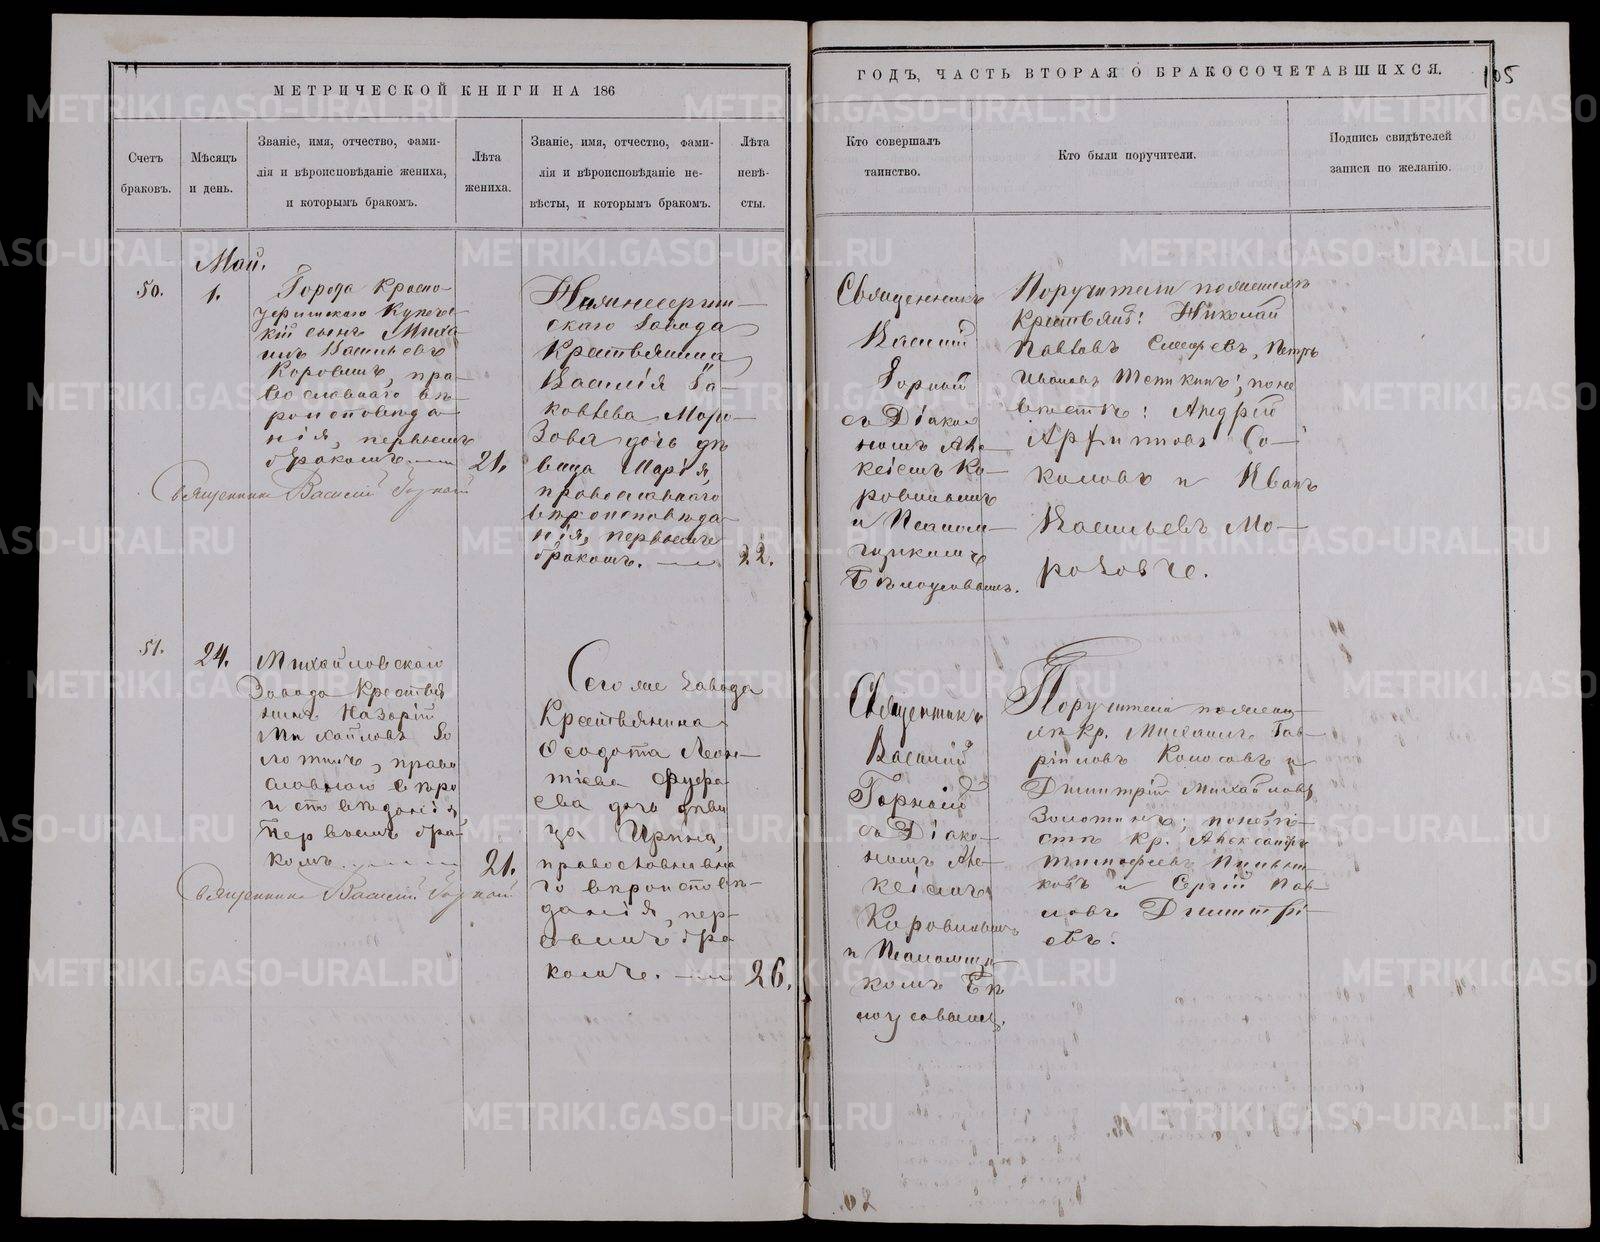 МЕТРИЧЕСКОЙ КНИГИ НА 186
ГОДЪ, ЧАСТЬ ВТОРАЯ О БРАКОСОЧЕТАВШИХСЯ.
105
Счетъ
браковъ.
Мѣсяцъ
и день.
Званіе, имя, отчество, фами-
лія и вѣроисповѣданіе жениха,
и которымъ бракомъ.
Лѣта
жениха.
Званіе, имя, отчество, фами-
лія и вѣроисповѣданіе не-
вѣсты, и которымъ бракомъ.
Лѣта
невѣ-
сты.
Кто совершалъ
таинство.
Кто были поручители.
Подпись свидѣтелей
записи по желанію.
Май.
50.
1.
Города Красно-
уфимскаго Купечес-
кій сынъ Миха-
илъ Васильевъ
Коровинъ, пра-
вославнаго вѣ-
роисповѣда-
нія, первымъ
бракомъ.
21.
Священникъ Василій Горной
Нижнесергин-
скаго завода
Крестьянина
Василія Яа-
ковлева Моро-
зова дочь дѣ-
вица Марія,
православнаго
вѣроисповѣда-
нія, первымъ
бракомъ.
22.
Священникъ
Василій
Горный
съ Діако-
номъ Але-
ксіемъ Ко-
ровинымъ
и Псалом-
щикомъ
Бѣлоусовымъ.
Поручители по женихѣ
Крестьяне: Николай
Павловъ
Петръ
Ивановъ
по не-
вѣстѣ: Андрей
Архиповъ Со-
коловъ и Иванъ
Васильевъ Мо-
розовъ.
51.
24.
Михайловскаго
Завода Крестья-
нинъ Назарій
Михайловъ Зо-
лотинъ, право-
славнаго вѣро-
исповѣданія,
первымъ бра-
комъ.
21.
Священникъ Василій Горной
Сего же завода
Крестьянина
Ѳеодота Леон-
тіева
дочь дѣви-
ца Ирина,
православна-
го вѣроисповѣ-
данія, пер-
вымъ бра-
комъ.
26.
Священникъ
Василій
Горной
съ Діако-
номъ Але-
ксіемъ
Коровинымъ
и Псаломщи-
комъ Бѣ-
лоусовымъ.
Поручители по жени-
хѣ Кр. Михаилъ Гав-
ріиловъ Колосовъ и
Димитрій Михайловъ
Золотинъ; по невѣ-
стѣ Кр. Александръ
Тимофеевъ
и Сергій Пав-
ловъ Димитрі-
евъ.
METRIKI.GASO-URAL.RU